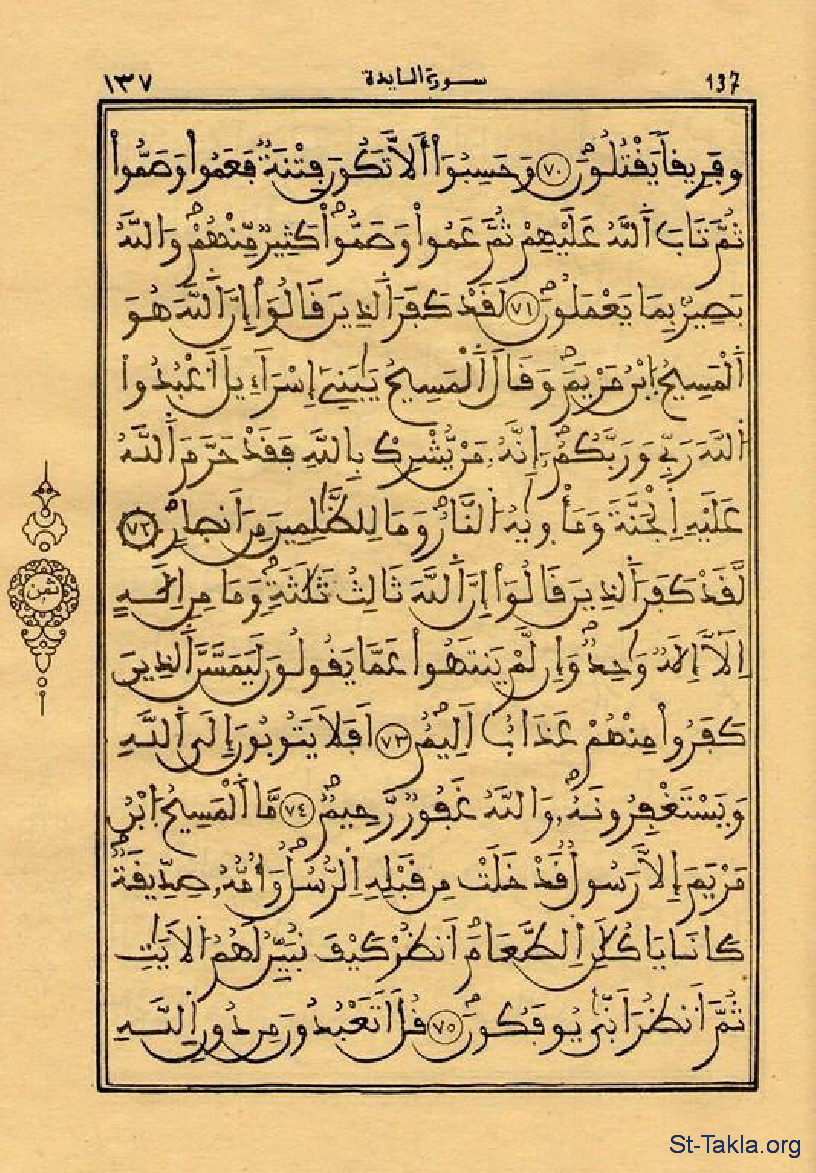 ١٣٧ سورة المايدة 137
وَفَرِيقاً يَقْتُلُونَۖ ٧٠ وَحَسِبُوٓاْ أَلَّا تَكُونَ فِتْنَةٞۖ فَعَمُواْ وَصَمُّواْ
ثُمَّ تَابَ اَ۬للَّهُ عَلَيْهِمْ ثُمَّ عَمُواْ وَصَمُّواْۖ كَثِيرٞ مِّنْهُمْۖ وَاللَّهُ
بَصِيرُۢ بِمَا يَعْمَلُونَۖ ٧١ لَقَدْ كَفَرَ اَ۬لذِينَ قَالُوٓاْ إِنَّ اَ۬للَّهَ هُوَ
اَ۬لْمَسِيحُ اُ۪بْنُ مَرْيَمَۖ وَقَالَ اَ۬لْمَسِيحُ يَٰبَنِےٓ إِسْرَآءِيلَ اَ۟عْبُدُواْ
اُ۬للَّهَ رَبِّے وَرَبَّكُمُۥٓۖ إِنَّهُۥ مَنْ يُّشْرِكْ بِاللَّهِ فَقَدْ حَرَّمَ اَ۬للَّهُ
عَلَيْهِ اِ۬لْجَنَّةَ وَمَأْو۪يٰهُ اُ۬لنَّارُۖ وَمَا لِلظَّٰلِمِينَ مِنْ أَنص۪ارٖۖ ٧٢
لَّقَدْ كَفَرَ اَ۬لذِينَ قَالُوٓاْ إِنَّ اَ۬للَّهَ ثَالِثُ ثَلَٰثَةٖۖ وَمَا مِنِ اِلَٰهٍ
اِلَّآ إِلَٰهٞ وَٰحِدٞۖ وَإِن لَّمْ يَنتَهُواْ عَمَّا يَقُولُونَ لَيَمَسَّنَّ اَ۬لذِينَ
كَفَرُواْ مِنْهُمْ عَذَابٌ اَلِيمٌۖ ٧٣ اَفَلَا يَتُوبُونَ إِلَى اَ۬للَّهِ
وَيَسْتَغْفِرُونَهُۥۖ وَاللَّهُ غَفُورٞ رَّحِيمٞۖ ٧٤ مَّا اَ۬لْمَسِيحُ اُ۪بْنُ
مَرْيَمَ إِلَّا رَسُولٞ قَدْ خَلَتْ مِن قَبْلِهِ اِ۬لرُّسُلُۖ وَأُمُّهُۥ صِدِّيقَةٞۖ
كَانَا يَاكُلَٰنِ اِ۬لطَّعَامَۖ اَ۟نظُرْ كَيْفَ نُبَيِّنُ لَهُمُ اُ۬لَايَٰتِ
ثُمَّ اَ۟نظُرَ اَنّ۪ىٰ يُوفَكُونَۖ ٧٥ قُلَ اَتَعْبُدُونَ مِن دُونِ اِ۬للَّهِ
ثمن
St-Takla.org